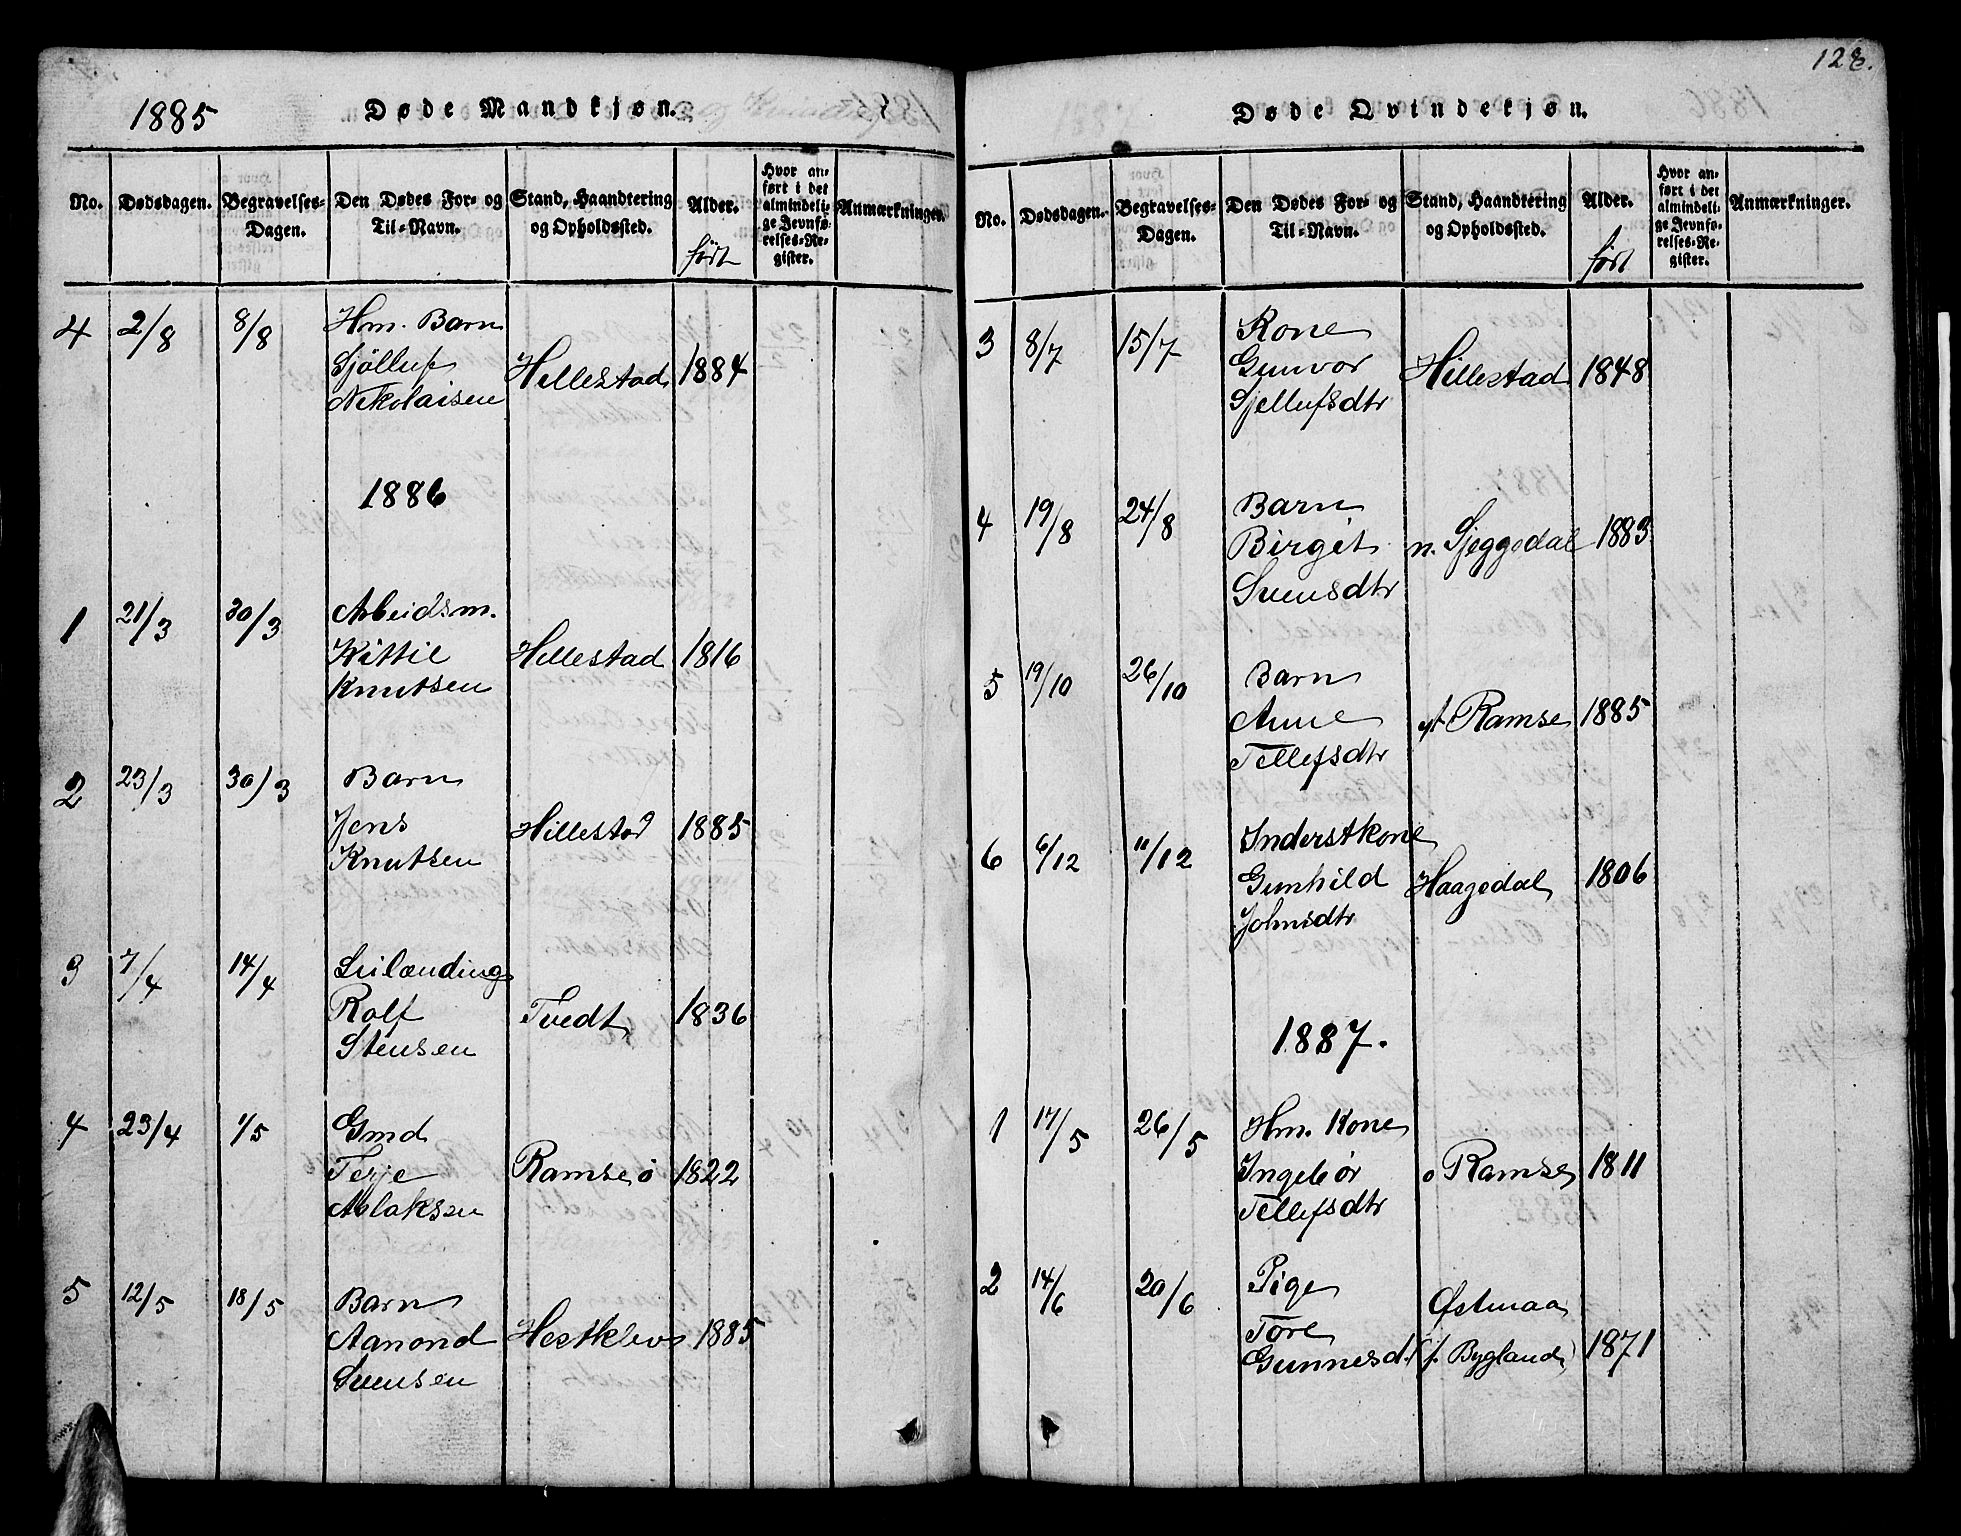 1885 Døde Mandkjøn.
No. Dødsdagen. Begravelses-Dagen. Den Dødes For- og Til-Navn. Stand, Haandtering og Opholdssted. Alder. født Hvor anført i det almindelige Jevnførelses-Register. Anmærkninger.
4 2/8 8/8 Hm. Barn
Sjölluf Hellestad 1884
Nikolaisen
1886
1 21/3 30/3 Arbeidsm.
Kittil Hellestad 1816
Knutsen
2 23/3 30/3 Barn
Jens Hillestad 1885
Knutsen
3 7/4 14/4 Leilænding
Rolf Tvedt 1836
Stensen
4 23/4 1/5 Gmd
Terje Ramse ö 1822
Aslaksen
5 12/5 18/5 Barn
Aanond Hestklev 1885
Svensen
128.
Døde Qvindekjøn.
No. Dødsdagen. Begravelses-Dagen. Den Dødes For- og Til-Navn. Stand, Haandtering og Opholdssted. Alder. født Hvor anført i det almindelige Jevnførelses-Register. Anmærkninger.
3 8/7 15/7 Kone
Gunvor Hillestad 1848
Sjellufsdtr
4 19/8 24/8 Barn
Birgit n. Sjeggedal 1883
Svensdtr
5 19/10 26/10 Barn
Anne yt Ramse 1885
Tellefsdtr
6 6/12 11/12 Inderstkone
Gunhild Haagedal 1806
Johnsdtr
1887.
1 17/5 26/5 Hm. Kone
Ingebør o Ramse 1811
Tellefsdtr
2 14/6 20/6 Pige Østmaa
Tore
Gunnesd. (f. Bygland) 1871